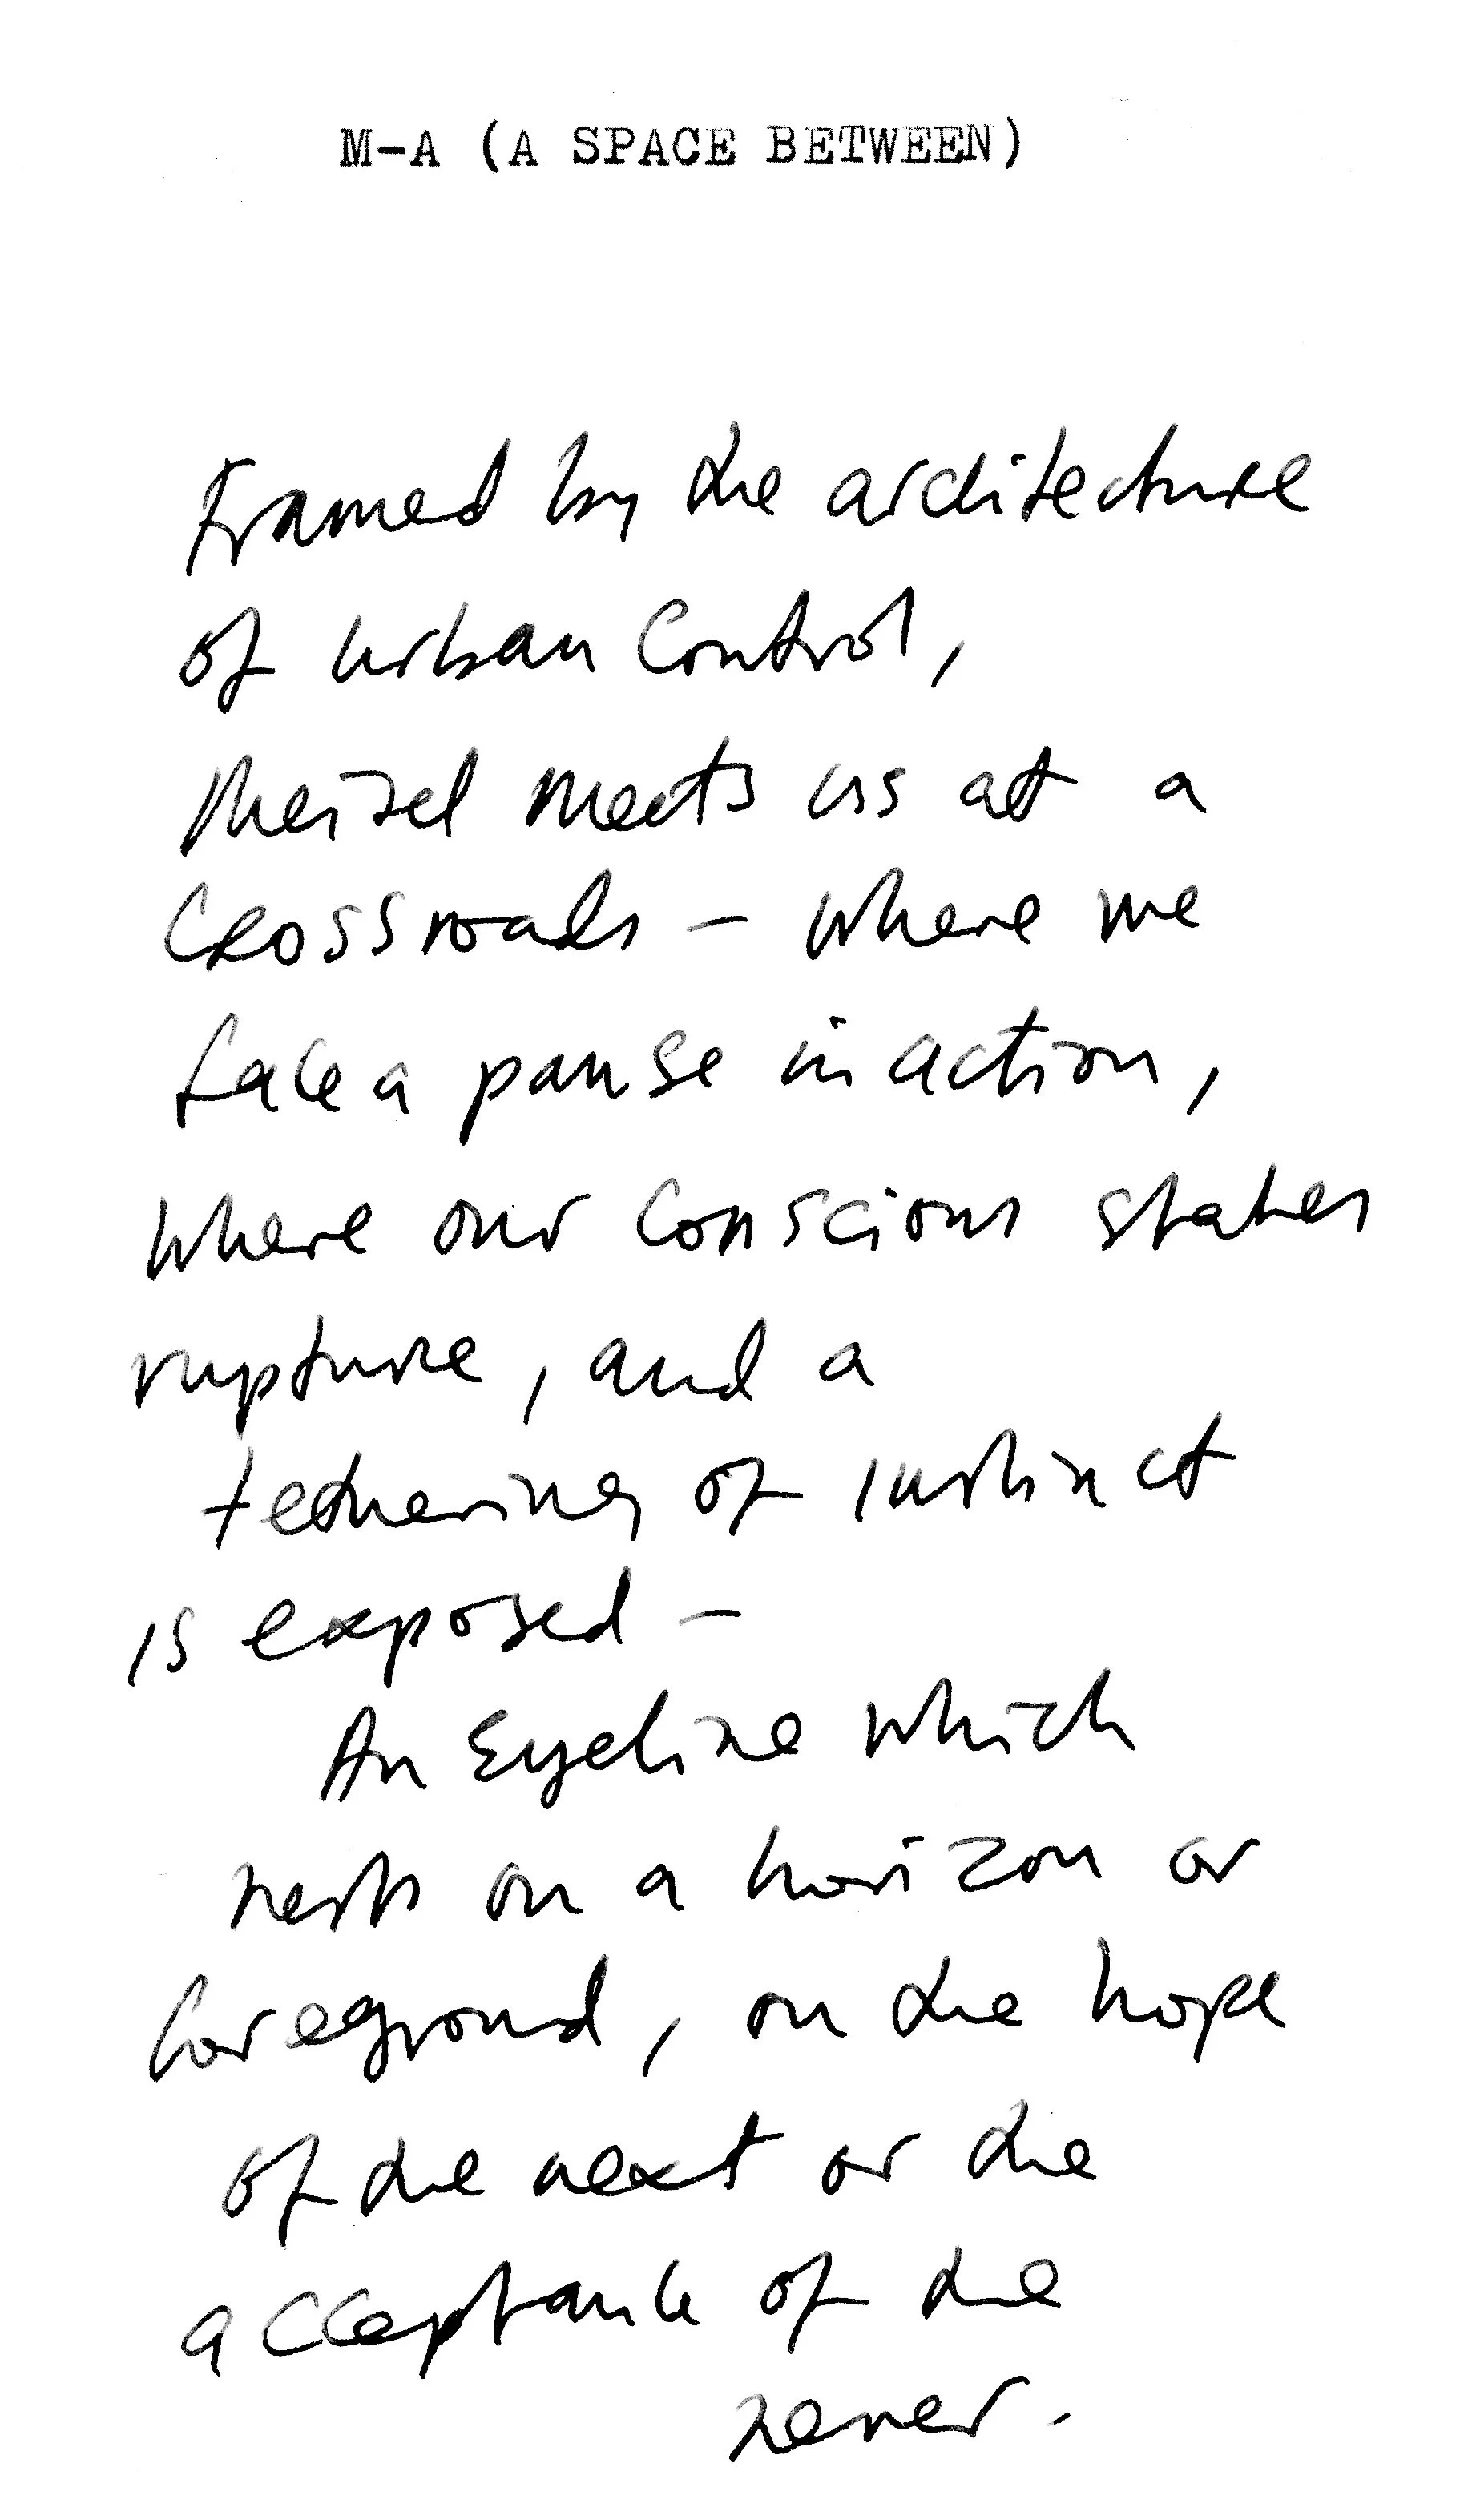 M-A (A SPACE BETWEEN)
Framed by the architecture
of urban control,
Meizel meets us at a
Crossroads - where we
take a pause in action,
where our conscious states
rupture, and a
tethering of instinct
is exposed -
An Eyeline which
rests on a horizon or
foreground, on the hope
of the next or the
acceptance of the
never.